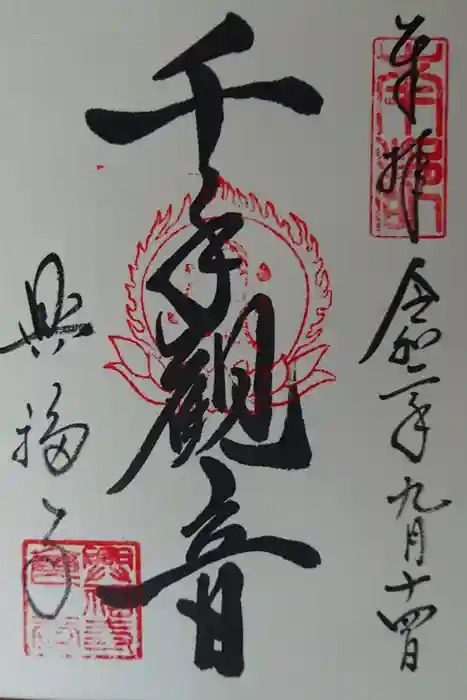 奉拝
令和二年九月十四日
千手観音
興福寺